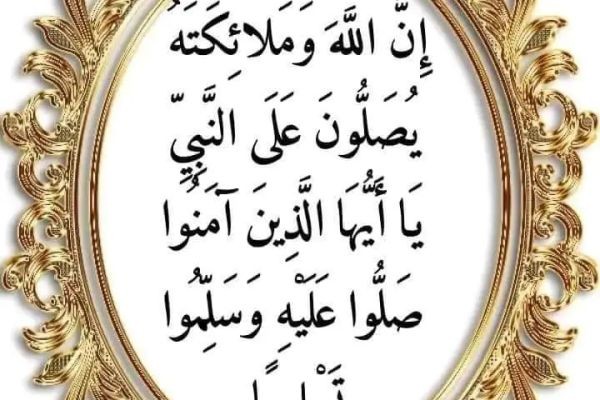 إِنَّ اللَّهَ وَمَلَائِكَتَهُ
يُصَلُّونَ عَلَى النَّبِيِّ
يَا أَيُّهَا الَّذِينَ آمَنُوا
صَلُّوا عَلَيْهِ وَسَلِّمُوا